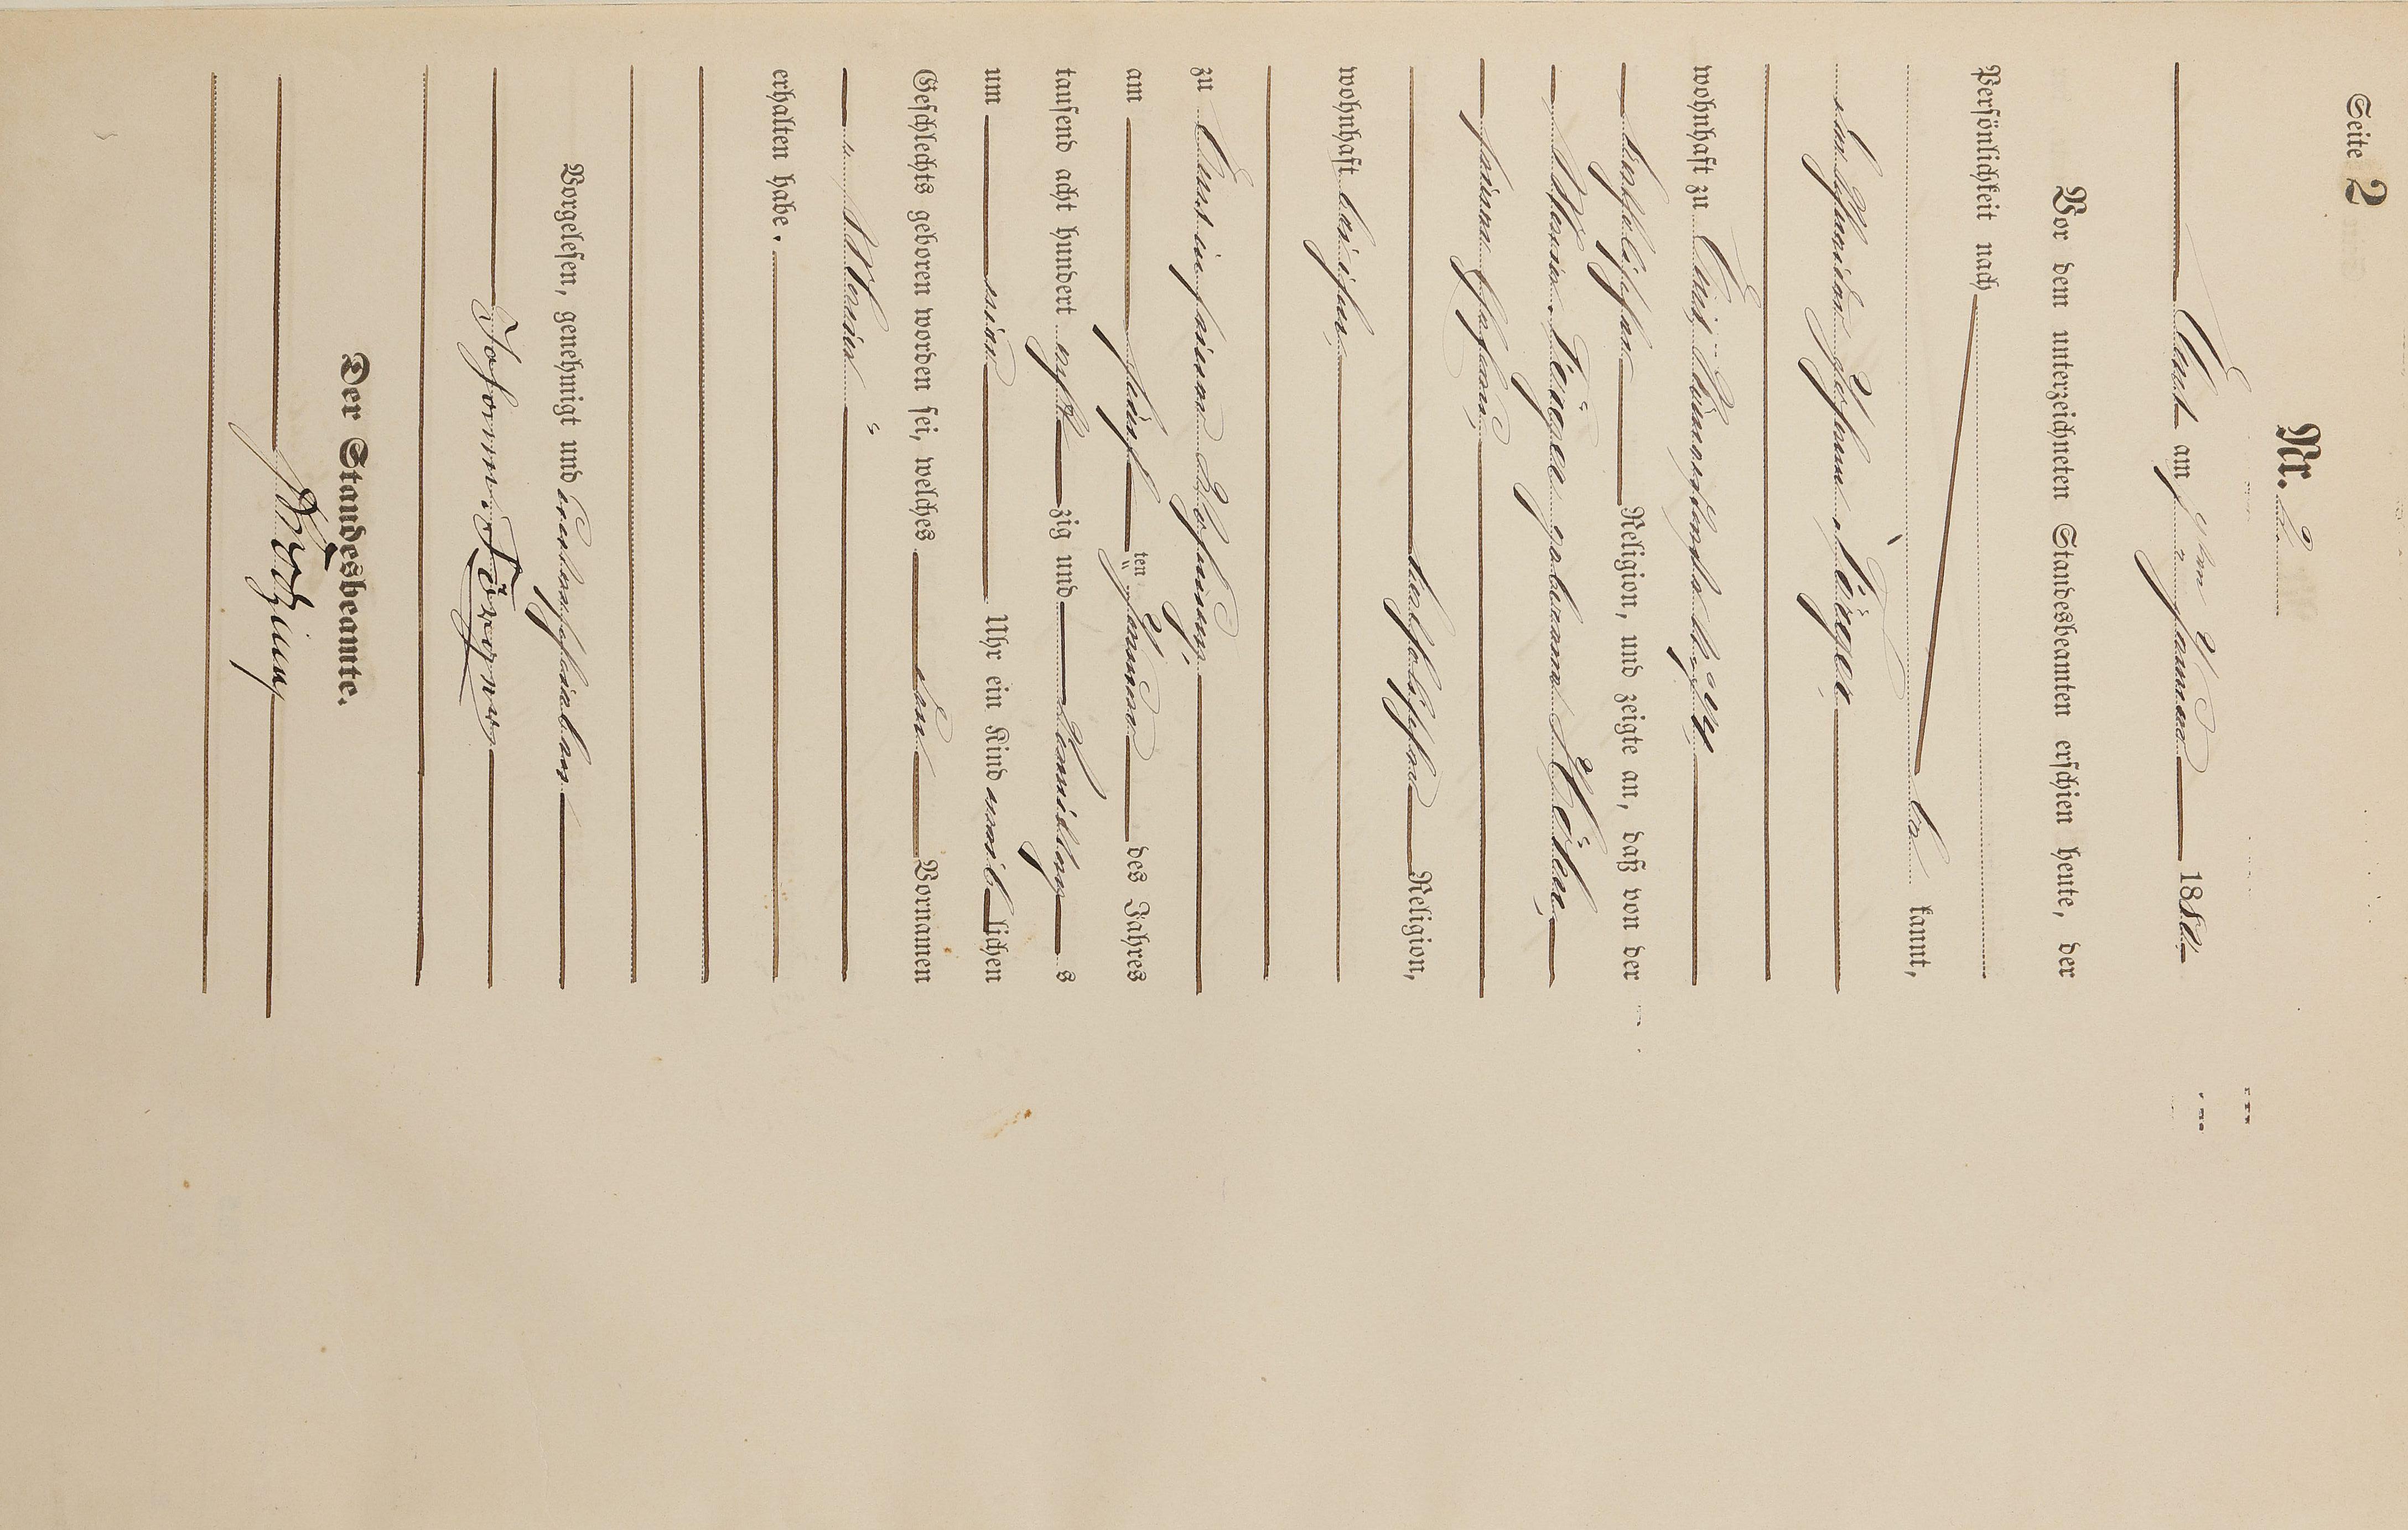 Seite 2
Nr. 2
Caub am 7ten Januar 1880
Vor dem unterzeichneten Standesbeamten erschien heute, der
Persönlichkeit nach
be kannt,
der Schneider Johann Jörger,
wohnhaft zu Caub
katholischer Religion, und zeigte an, daß von der
Maria Jörger geborenen
seiner Ehefrau,
katholischer Religion,
wohnhaft bei ihm,
zu Caub in seiner Wohnung
am fünf ten Januar des Jahres
tausend acht hundert acht zig und Vormittag s
um neun Uhr ein Kind weib lichen
Geschlechts geboren worden sei, welches den Vornamen
„Maria“
erhalten habe.
Vorgelesen, genehmigt und unterschrieben
Johann Jörger
Der Standesbeamte.